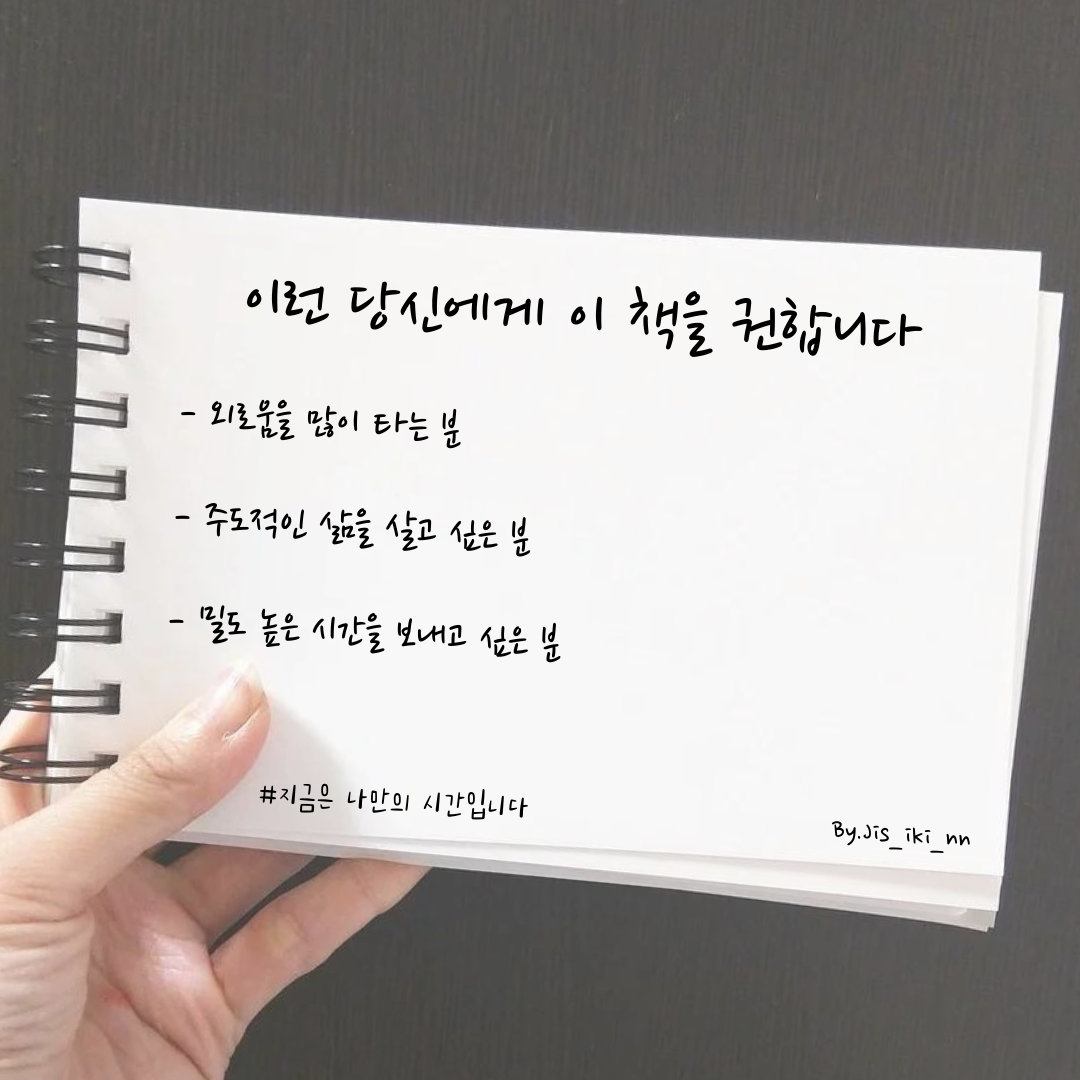 이런 당신에게 이 책을 권합니다
- 외로움을 많이 타는 분
- 주도적인 삶을 살고 싶은 분
- 밀도 높은 시간을 보내고 싶은 분
#지금은 나만의 시간입니다
By.Jis_iki_nn